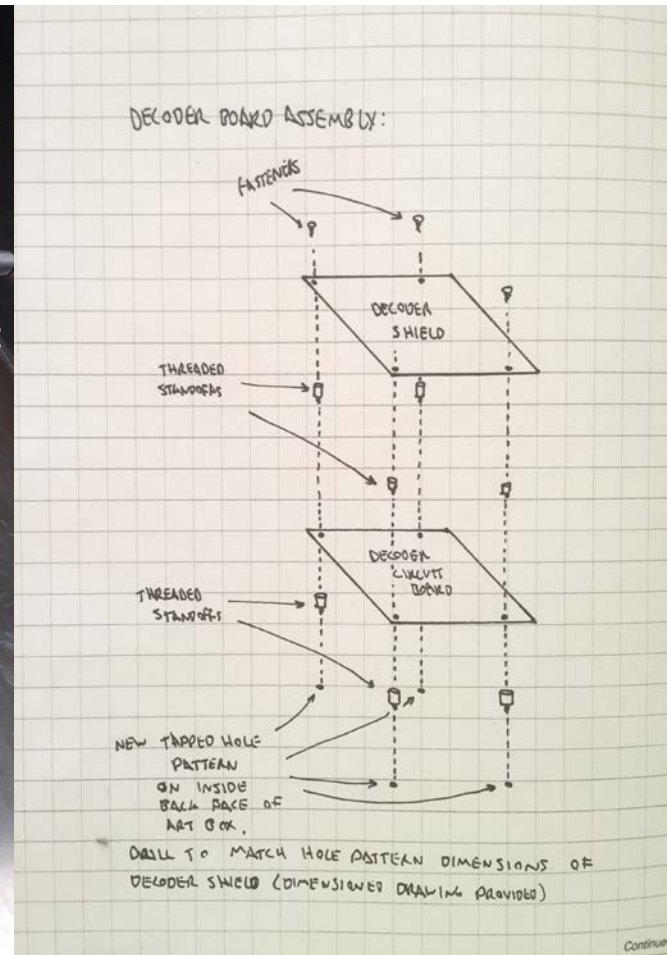 DECODER BOARD ASSEMBLY:
FASTENERS
DECODER
SHIELD
THREADED
STANDOFFS
DECODER
CIRCUIT
BOARD
THREADED
STANDOFFS
NEW TAPPED HOLE
PATTERN
ON INSIDE
BACK FACE OF
ART BOX.
DRILL TO MATCH HOLE PATTERN DIMENSIONS OF
DECODER SHIELD (DIMENSIONED DRAWING PROVIDED)
Continue